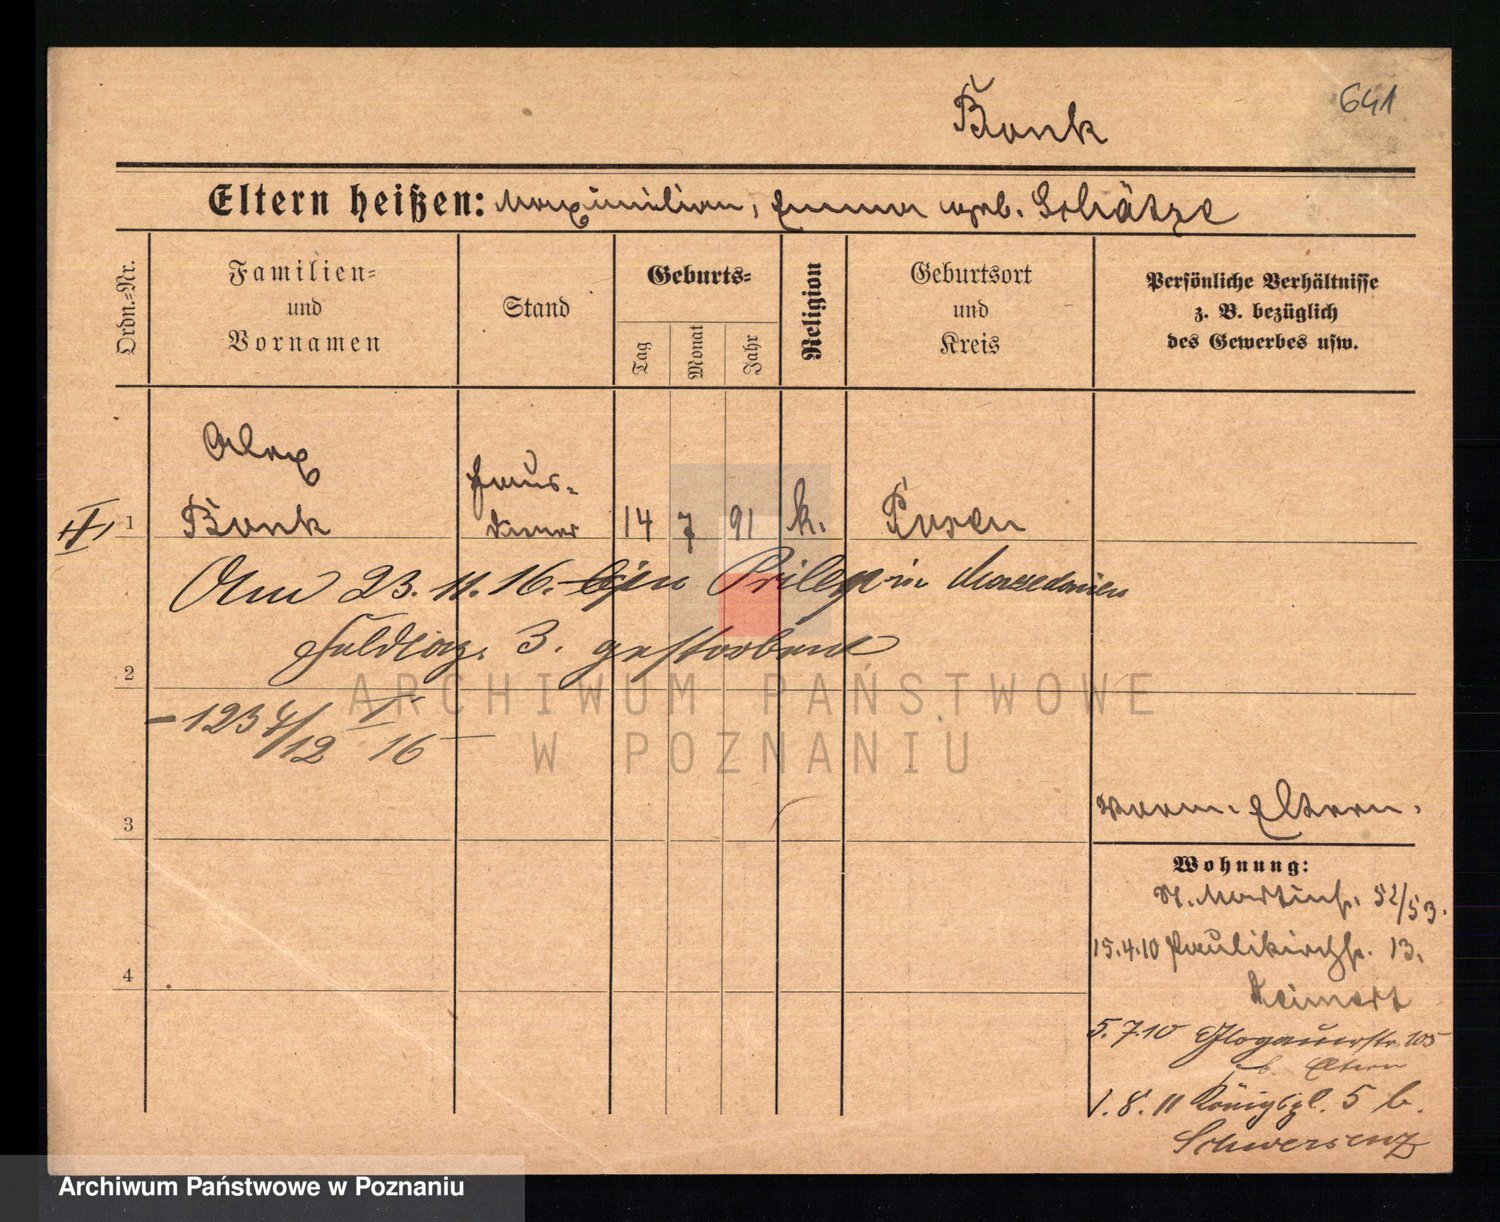 Bonk
641
Eltern heißen: Maximilian, Emma geb. Schätze
Ordn.-Nr.
Familien-
und
Vornamen
Stand
Geburts-
Tag
Monat
Jahr
Religion
Geburtsort
und
Kreis
Persönliche Verhältnisse
z. B. bezüglich
des Gewerbes usw.
Alex
Bonk
Haus-
diener
1
14 7 91 k. Posen
Am 23. 11. 16. in Prilep in Mazedonien
Feldlaz. 3. gestorben
2
- 1234/12 I 16 -
3
verm. Eltern.
Wohnung:
St. Martinstr. 52/53.
15.4.10 Paulikirchstr. 13.
4
5.7.10 Glogauerstr. 105
b. Eltern
1.8.11 Königspl. 5 b.
Schwersenz
ARCHIWUM PAŃSTWOWE
W POZNANIU
Archiwum Państwowe w Poznaniu